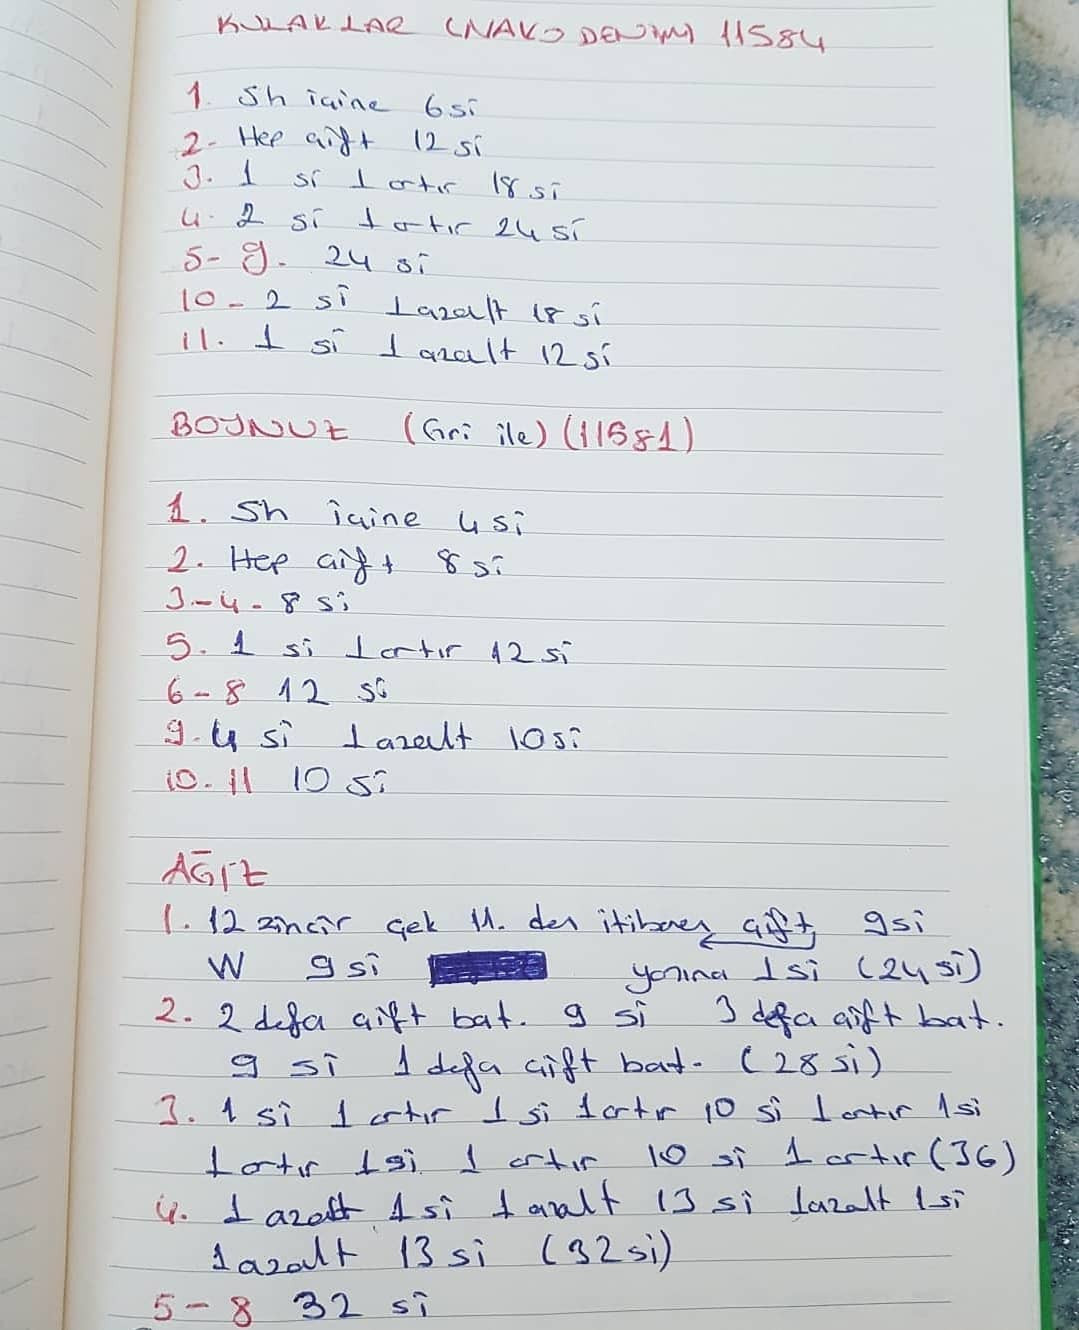 KULAKLAR (NAKO DENIM) 11584
1. Sh içine 6 si
2- Hep çift 12 si
3. 1 si 1 artır 18 si
4. 2 si 1 artır 24 si
5-9. 24 si
10- 2 si 1 azalt 18 si
11. 1 si 1 azalt 12 si
BOYNUZ (Gri ile) (11581)
1. Sh içine 4 si
2. Hep çift 8 si
3-4- 8 si
5. 1 si 1 artır 12 si
6-8 12 si
9. 4 si 1 azalt 10 si
10-11 10 si
AĞIZ
1. 12 zincir çek 11. den itibaren çift 9 si
W 9 si yanına 1 si (24 si)
2. 2 defa çift bat. 9 si 3 defa çift bat.
9 si 1 defa çift bat. (28 si)
3. 1 si 1 artır 1 si 1 artır 10 si 1 artır 1 si
1 artır 1 si 1 artır 10 si 1 artır (36)
4. 1 azalt 1 si 1 azalt 13 si 1 azalt 1 si
1 azalt 13 si (32 si)
5-8 32 si